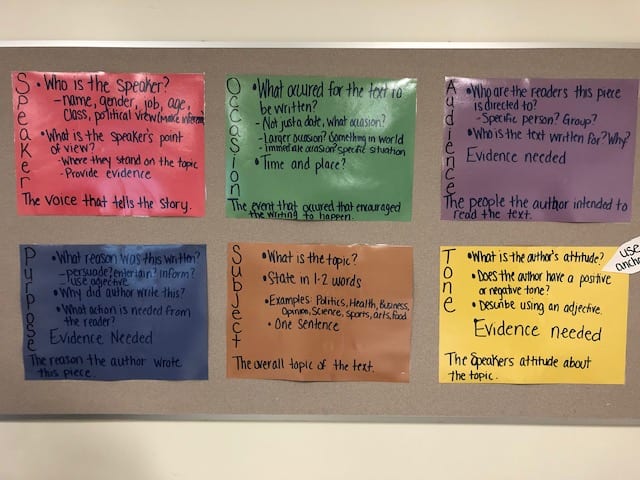 Speaker
• Who is the speaker?
- name, gender, job, age,
class, political view (make inference
• What is the speaker's point
of view?
- Where they stand on the topic
- Provide evidence
The voice that tells the Story.
Occasion
• What occured for the text to
be written?
- Not just a date, what occasion?
- Larger occasion? Something in world
- Immediate occasion? Specific situation
• Time and place?
The event that occured that encouraged
the writing to happen.
Audience
• Who are the readers this piece
is directed to?
- Specific person? Group?
• Who is the text written for? Why?
Evidence needed
The people the author intended to
read the text.
Purpose
• What reason was this written?
- persuade? entertain? Inform?
- use adjective
• Why did author write this?
• What action is needed from
the reader?
Evidence Needed
The reason the author wrote
this piece.
Subject
• What is the topic?
• State in 1-2 words
• Examples: Politics, Health, Business,
Opinion, Science, sports, arts, food
• One Sentence
The overall topic of the text.
Tone
• What is the author's attitude?
• Does the author have a positive
or negative tone?
• Describe using an adjective.
Evidence needed
The Speakers attitude about
the topic.
use